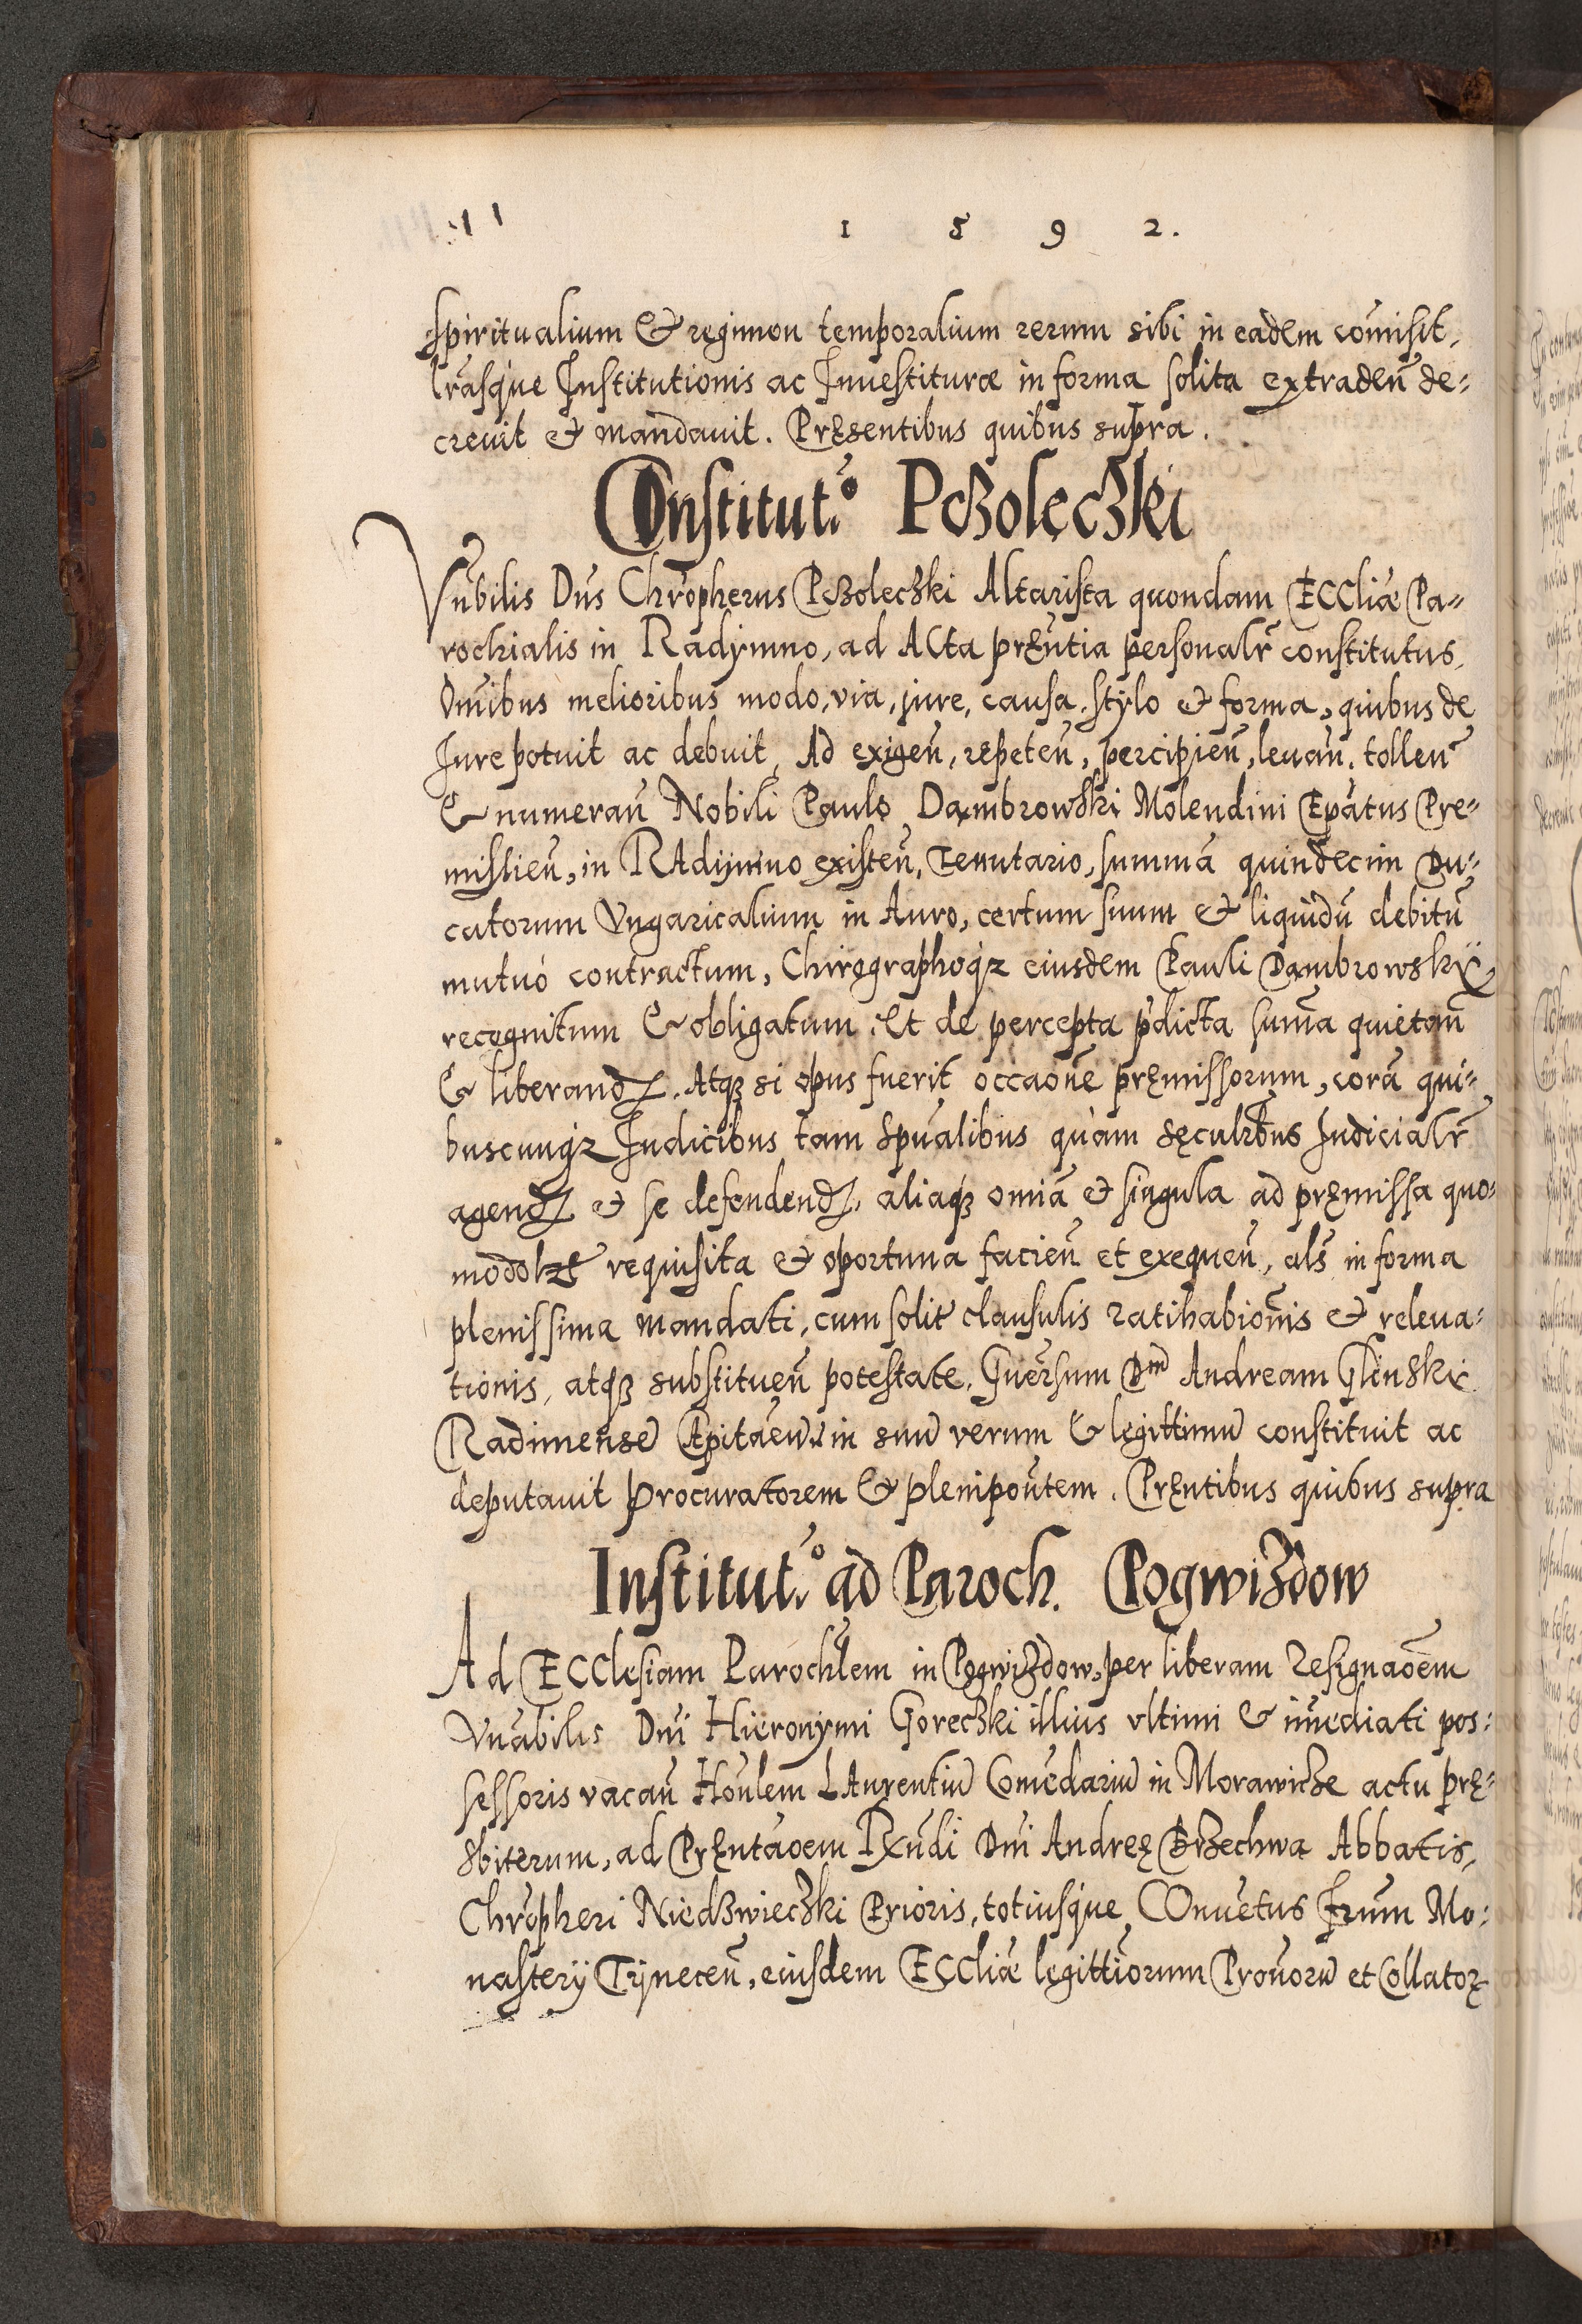 1 5 9 2.
spiritualium & regimen temporalium rerum sibi in eadem com̄isit,
lr̄asq́ue Institutionis ac Inuestituræ in forma solita extraden̄ de-
creuit & mandauit. Pręsentibus quibus supra.
Constitut.º Pczoleczki
Vn̄bilis Dn̄s Chr̄opherus Pczoleczki Altarista quondam Eccliæ Pa-
rochialis in Radymno, ad Acta pręn̄tia personalr̄ constitutus,
Om̄ibus melioribus modo, via, jure, causa, stylo & forma, quibus de
Jure potuit ac debuit, Ad exigen̄, repeten̄, percipien̄, leuan̄, tollen̄
& numeran̄ Nobili Paulo Dambrowski Molendini Ep̄atus Pre-
mislien̄, in Radijmno existen̄, Tenutario, summā quindecim Du-
catorum Vngaricalium in Auro, certum suum & liquidū debitū
mutuó contractum, Chirographoq́z eiusdem Pauli Dambrowskÿ
recognitum & obligatum. Et de percepta p̄dicta sum̄a quietan̄
& liberand. Atqz si opus fuerit occaōne pręmissorum, corā qui-
buscunqz Judicibus tam Spūalibus quàm sęculrb̄us Judicialr̄
agend & se defendend, aliaqz om̄ia & singula ad pręmissa quo-
modolzt requisita & oportuna facien̄ et exequen̄, als̄ in forma
plenissima mandati, cum solit̄ clausulis ratihabiōnis & releua-
tionis, atqz substituen̄ potestate. Gn̄ersum Dnū Andream Glinski
Radimense Cpitāeū in suū verum & legittimū constituit ac
deputauit Procuratorem & plenipōntem. Pręn̄tibus quibus supra
Institut.º ad Paroch. Pogwizdow
Ad Ecclesiam Parochlem in Pogwizdow, per liberam resignaōem
Vn̄abilis Dn̄i Hieronymi Goreczki illius vltimi & im̄ediati pos-
sessoris vacan̄ Hon̄lem Laurentiū Com̄edariū in Morawicze actu prę-
sbiterum, ad Pręn̄taōem Rx̄ndi Dn̄i Andreę Brzechwa Abbatis,
Chr̄opheri Niedzwieczki Prioris, totiusq́ue Conuētus frūm Mo-
nasterij Tÿnecen̄, eiusdem Eccliæ legittiōrum Prou̅orū et Collator